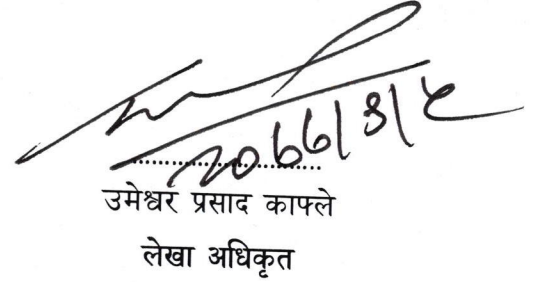 २०७७/३/५
उमेश्वर प्रसाद काफ्ले
लेखा अधिकृत